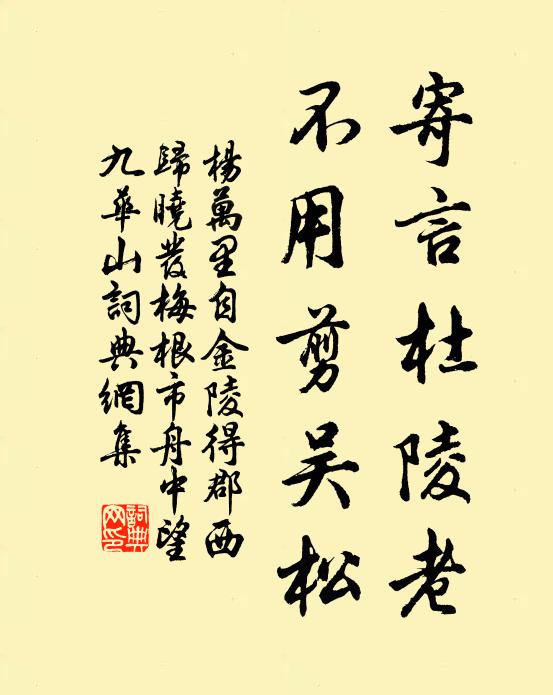 寄言杜陵老
不用剪吴松
楊萬里自金陵得郡西
歸曉發梅根市舟中望
九華山詞典網集
詞典
网印